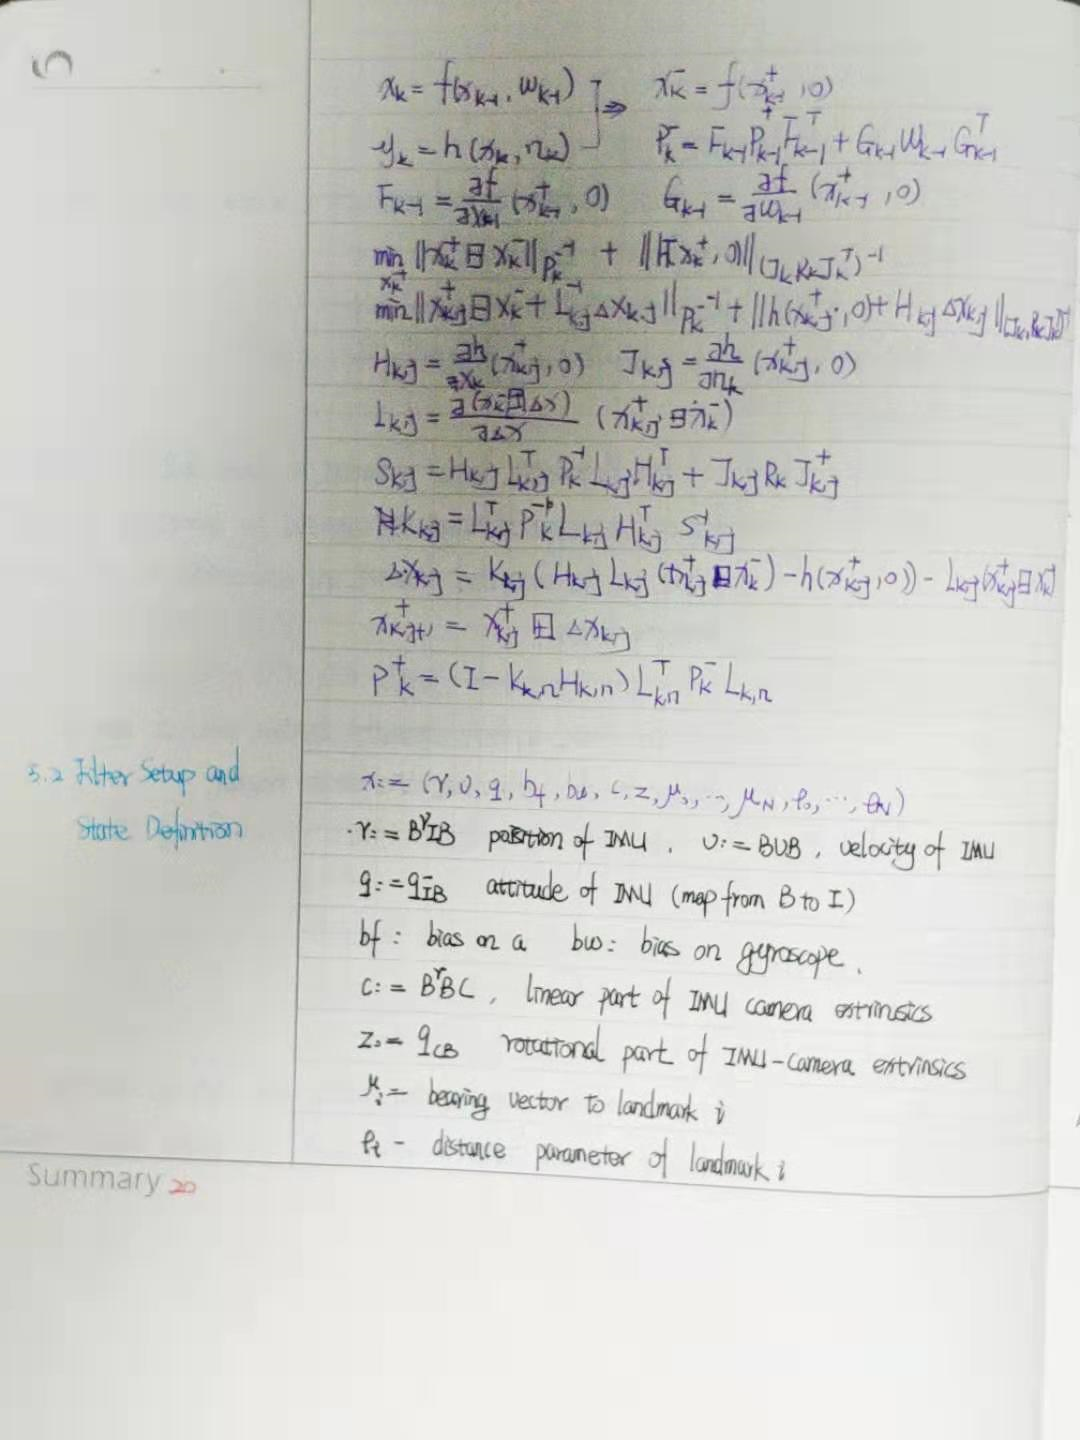 5
x_k = f(x_{k-1}, w_{k-1}) ⇒ x_k^- = f(x_{k-1}^+, 0)
y_k = h(x_k, n_k) P_k^- = F_{k-1} P_{k-1}^+ F_{k-1}^T + G_{k-1} W_{k-1} G_{k-1}^T
F_{k-1} = ∂f/∂x_{k-1} (x_{k-1}^+, 0) G_{k-1} = ∂f/∂w_{k-1} (x_{k-1}^+, 0)
min_{x_k^+} ||x_k^+ ⊟ x_k^-||_{P_k^{-1}} + || x_k^+, 0)||_{(J_k R_k J_k^T)^{-1}}
min ||x_{k,j}^+ ⊟ x_k^- + L_{k,j}^{-1} Δx_{k,j}||_{P_k^{-1}} + ||h(x_{k,j}^+, 0) + H_{k,j} Δx_{k,j}||
H_{k,j} = ∂h/∂x_k (x_{k,j}^+, 0) J_{k,j} = ∂h/∂n_k (x_{k,j}^+, 0)
L_{k,j} = ∂(x_k^- ⊞ Δx)/∂Δx (x_{k,j}^+ ⊟ x_k^-)
S_{k,j} = H_{k,j} L_{k,j}^T P_k^- L_{k,j} H_{k,j}^T + J_{k,j} R_k J_{k,j}^+
K_{k,j} = L_{k,j}^T P_k^- L_{k,j} H_{k,j}^T S_{k,j}^{-1}
Δx_{k,j} = K_{k,j} (H_{k,j} L_{k,j} (x_{k,j}^+ ⊟ x_k^-) - h(x_{k,j}^+, 0)) - L_{k,j} (x_{k,j}^+ ⊟ x_k^-)
x_{k,j+1}^+ = x_{k,j}^+ ⊞ Δx_{k,j}
P_k^+ = (I - K_{k,n} H_{k,n}) L_{k,n}^T P_k^- L_{k,n}
3.2 Filter Setup and
State Definition
x := (r, υ, q, b_f, b_ω, c, z, μ_0, ..., μ_N, ρ_0, ..., ρ_N)
·r := BrIB position of IMU. υ := BυB, velocity of IMU
q := qIB attitude of IMU (map from B to I)
bf : bias on a bω : bias on gyroscope.
c := BrBC, linear part of IMU camera extrinsics
z := qCB rotational part of IMU-camera extrinsics
μ_i - bearing vector to landmark i
ρ_i - distance parameter of landmark i
Summary 20